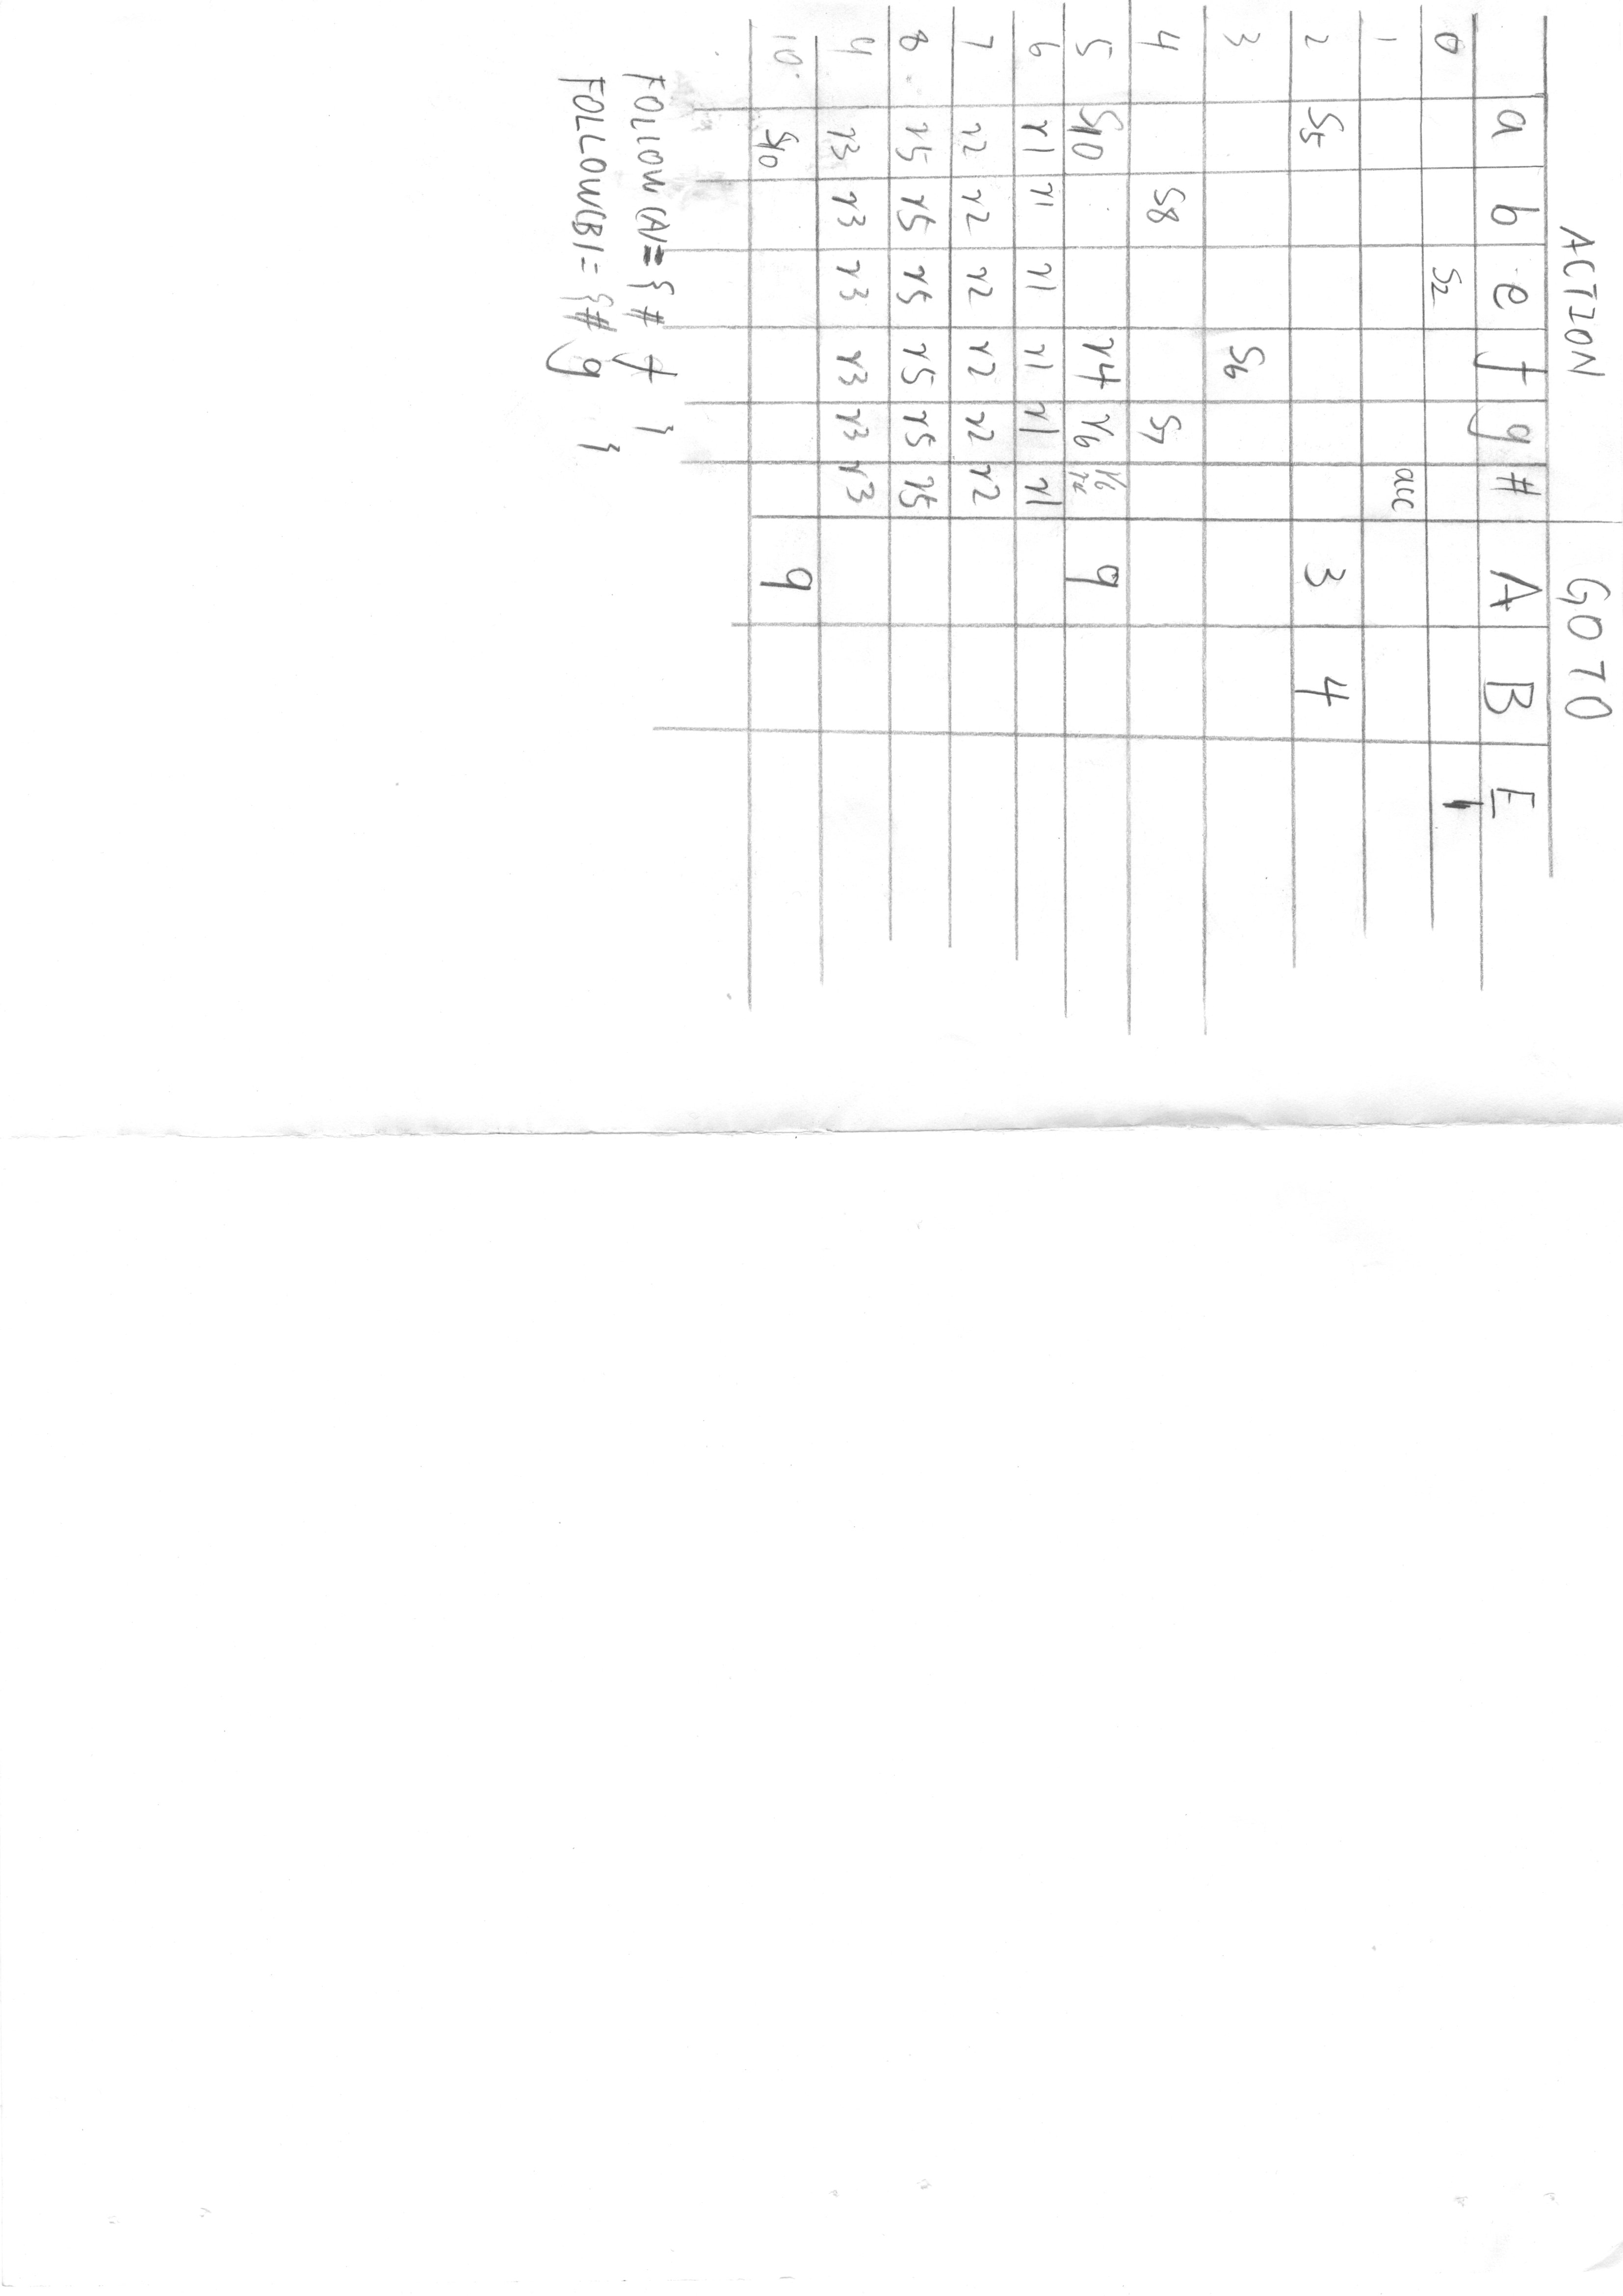 ACTION GOTO
a b e f g # A B E
0 S2 1
1 acc
2 S5 3 4
3 S6
4 S8 S7
5 S10 r4 r6 r6 r4 9
6 r1 r1 r1 r1 r1 r1
7 r2 r2 r2 r2 r2 r2
8 r5 r5 r5 r5 r5 r5
9 r3 r3 r3 r3 r3 r3
10 S10 9
FOLLOW(A)={# f }
FOLLOW(B)={# g }